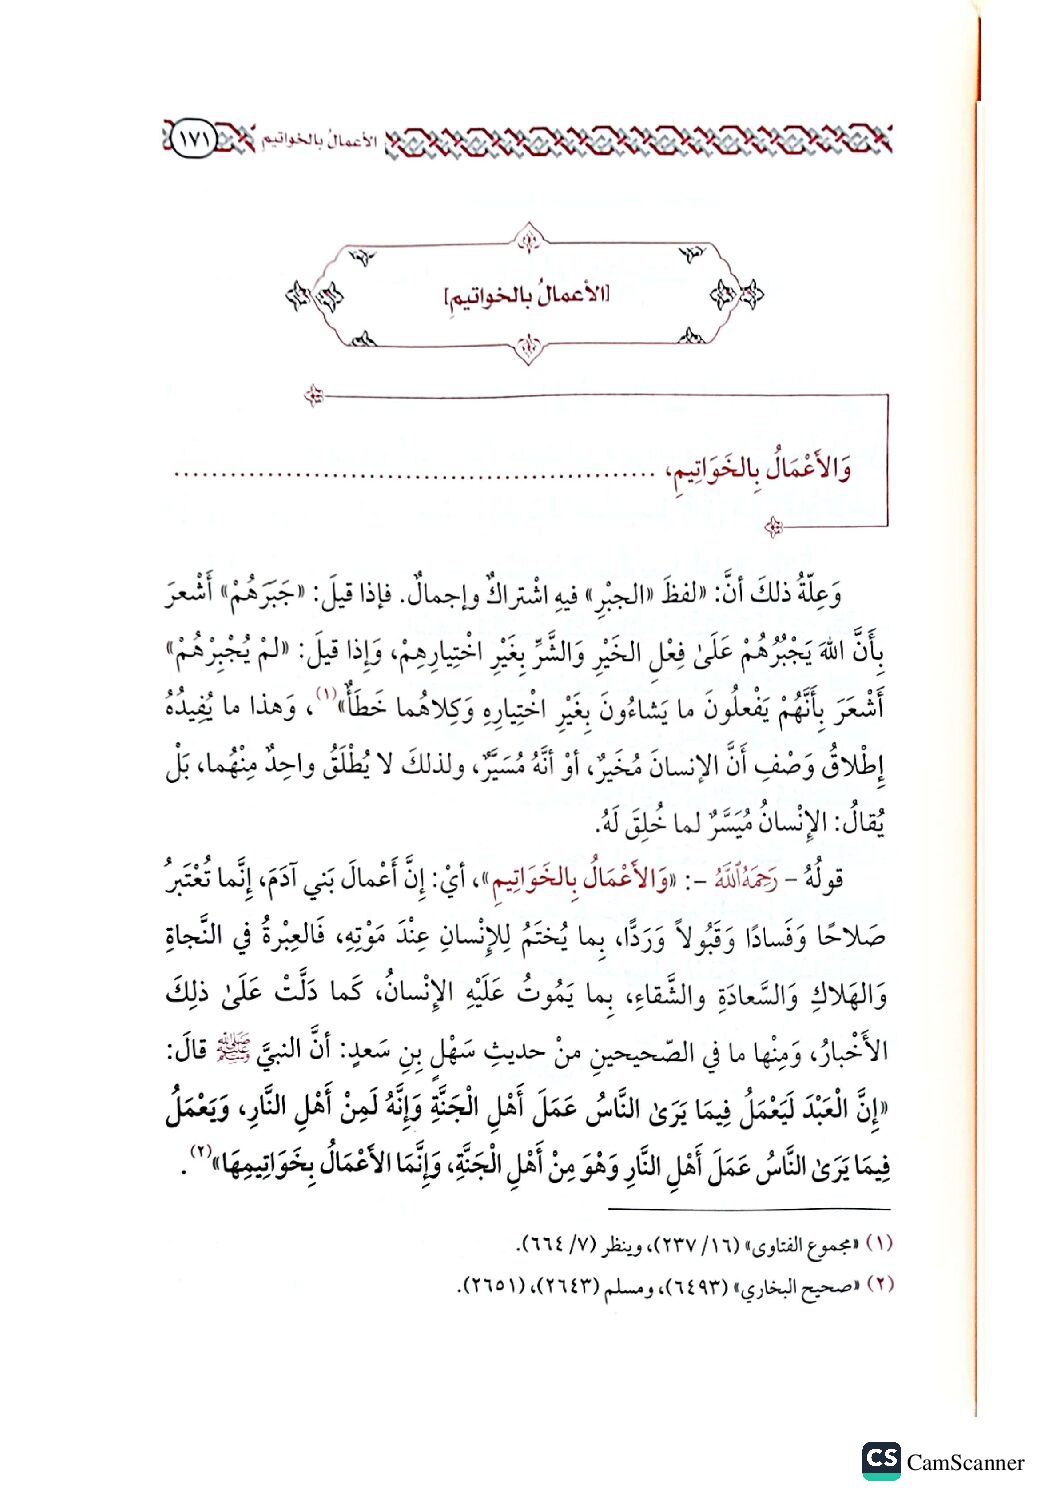 الأعمالُ بالخواتيمِ ١٧١
[الأعمالُ بالخواتيمِ]
وَالأَعْمَالُ بِالخَوَاتِيمِ، ....................................................
وَعِلّةُ ذلكَ أنَّ: «لفظَ «الجبْرِ» فيهِ اشْتراكٌ وإجمالٌ. فإذا قيلَ: «جَبَرَهُمْ» أَشْعرَ
بِأَنَّ اللهَ يَجْبُرُهُمْ عَلَىٰ فِعْلِ الخَيْرِ وَالشَّرِّ بِغَيْرِ اخْتِيارِهِمْ، وَإِذا قيلَ: «لمْ يُجْبِرْهُمْ»
أَشْعَرَ بِأَنَّهُمْ يَفْعلُونَ ما يَشاءُونَ بِغَيْرِ اخْتِيارِهِ وَكِلاهُما خَطَأٌ»(١)، وَهذا ما يُفِيدُهُ
إِطْلاقُ وَصْفِ أَنَّ الإنسانَ مُخَيرٌ، أوْ أنَّهُ مُسَيَّرٌ، ولذلكَ لا يُطْلَقُ واحِدٌ مِنْهُما، بَلْ
يُقالُ: الإنْسانُ مُيَسَّرٌ لما خُلِقَ لَهُ.
قولُهُ – رَحِمَهُ ٱللَّهُ –: «وَالأَعْمَالُ بِالخَوَاتِيمِ»، أيْ: إنَّ أَعْمالَ بَني آدَمَ، إِنَّما تُعْتَبرُ
صَلاحًا وَفَسادًا وَقَبُولاً وَرَدًّا، بِما يُختَمُ لِلإِنْسانِ عِنْدَ مَوْتِهِ، فَالعِبْرةُ في النَّجاةِ
وَالهَلاكِ وَالسَّعادَةِ والشَّقاءِ، بِما يَمُوتُ عَلَيْهِ الإنْسانُ، كَما دَلَّتْ عَلَىٰ ذلِكَ
الأَخْبارُ، وَمِنْها ما في الصّحيحينِ منْ حديثِ سَهْلِ بنِ سَعدٍ: أنَّ النبيَّ ﷺ قالَ:
«إِنَّ الْعَبْدَ لَيَعْمَلُ فِيمَا يَرَىٰ النَّاسُ عَمَلَ أَهْلِ الْجَنَّةِ وَإِنَّهُ لَمِنْ أَهْلِ النَّارِ، وَيَعْمَلُ
فِيمَا يَرَىٰ النَّاسُ عَمَلَ أَهْلِ النَّارِ وَهْوَ مِنْ أَهْلِ الْجَنَّةِ، وَإِنَّمَا الأَعْمَالُ بِخَوَاتِيمِهَا»(٢).
(١) «مجموع الفتاوى» (١٦/ ٢٣٧)، وينظر (٧/ ٦٦٤).
(٢) «صحيح البخاري» (٦٤٩٣)، ومسلم (٢٦٤٣)، (٢٦٥١).
CS CamScanner